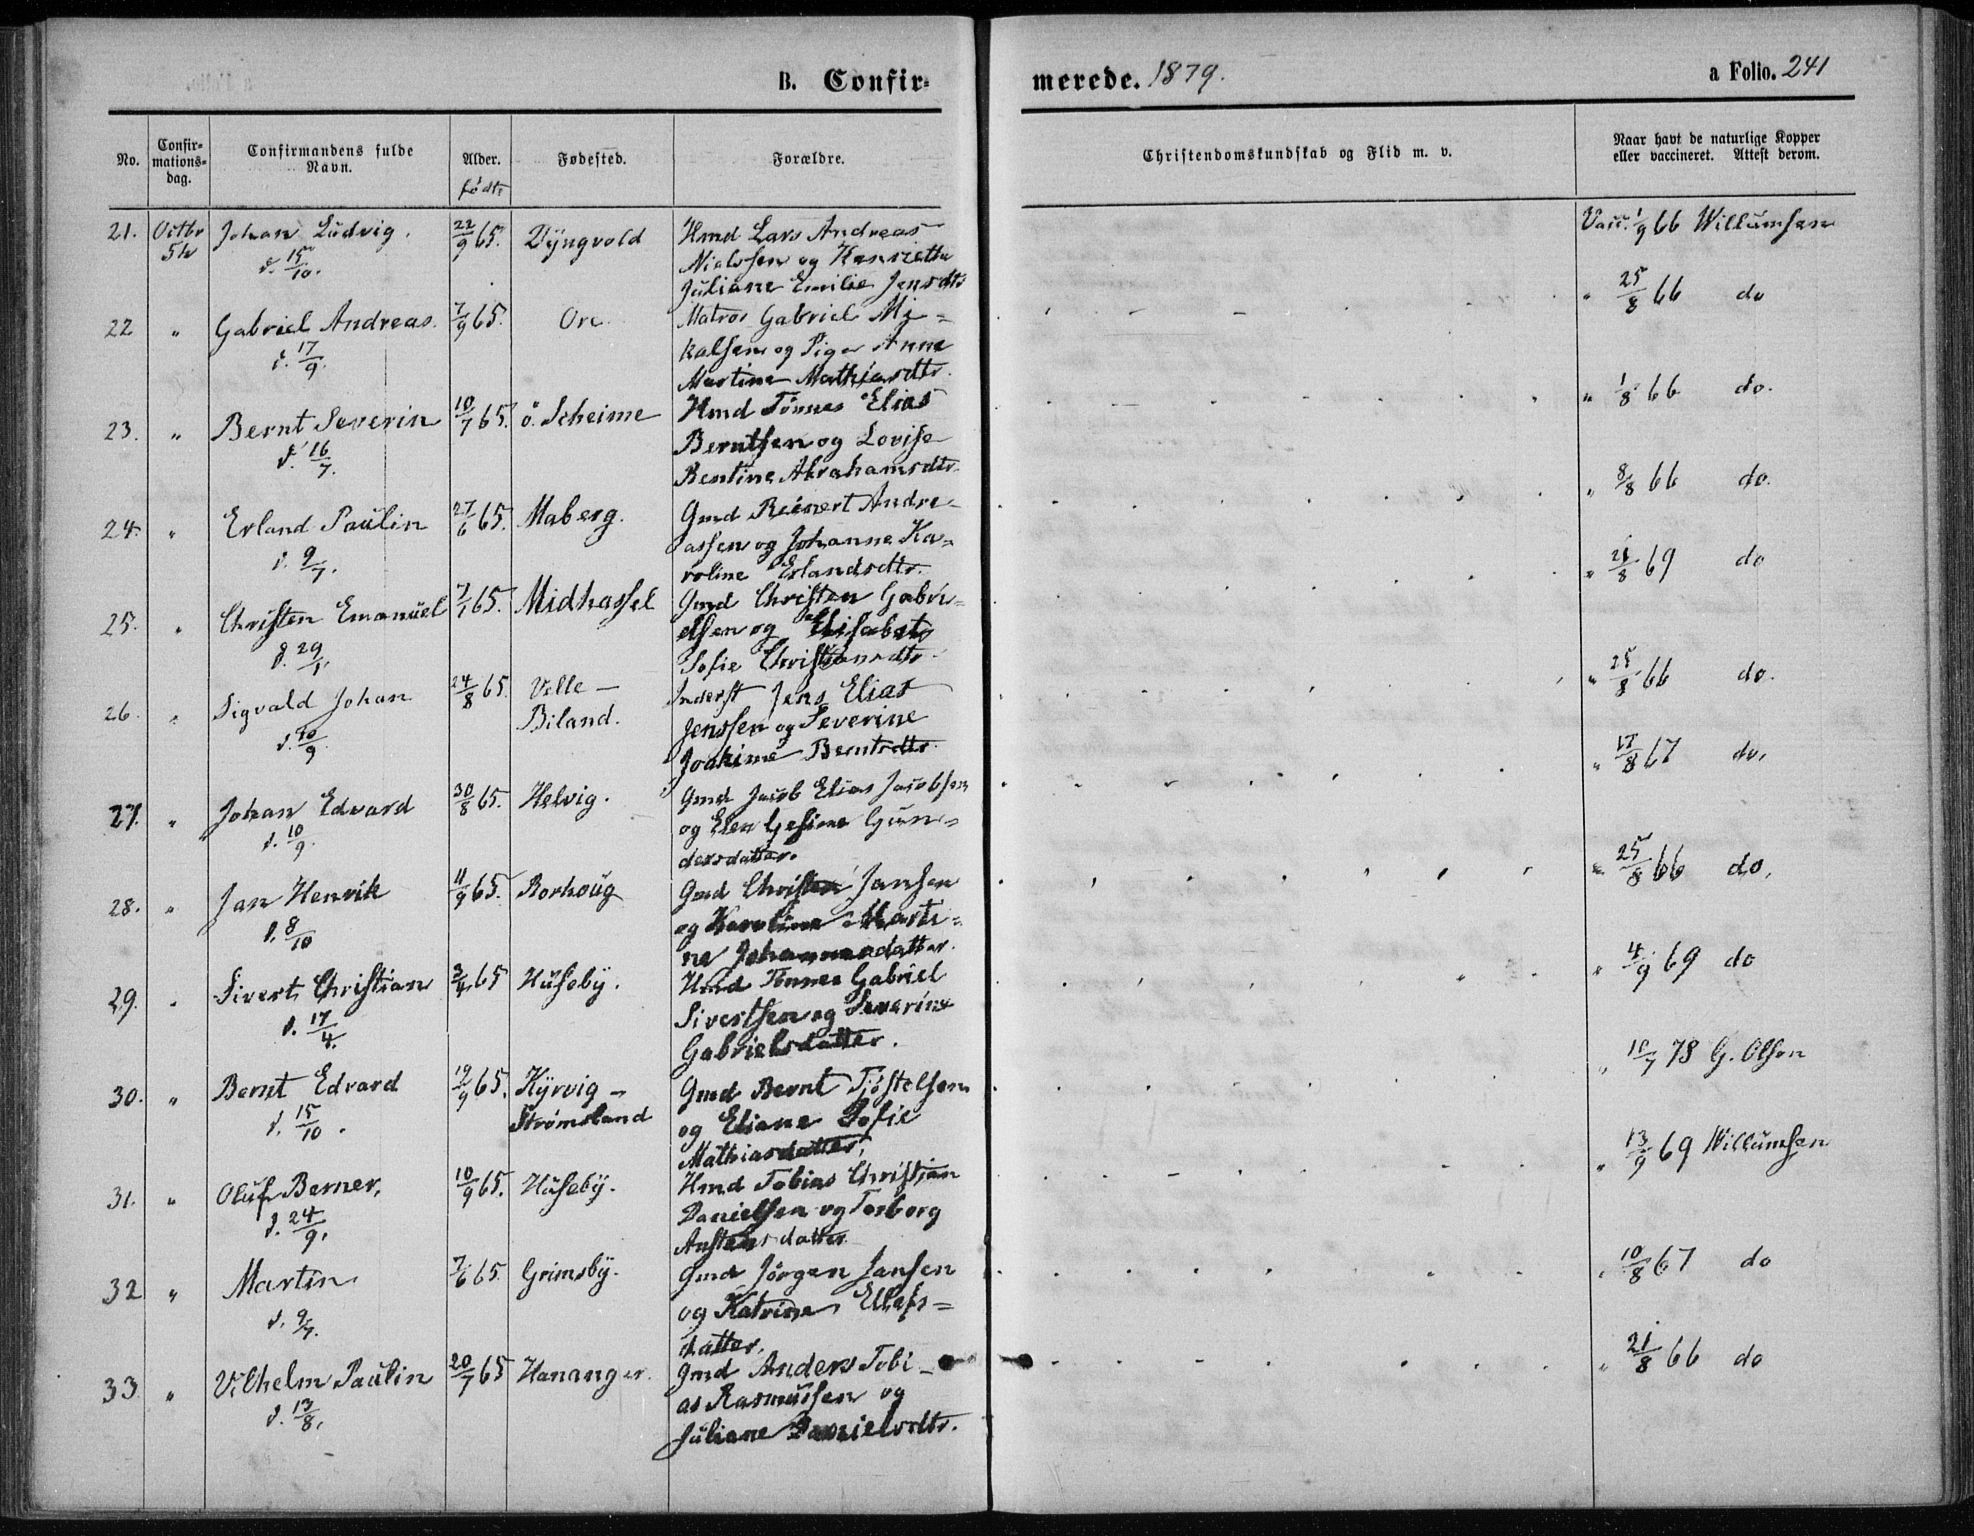 B. Confir-
merede. 1879.
a Folio. 241
No.
Confir-
mations-
dag.
Confirmandens fulde
Navn.
Alder.
fødte
Fødested.
Forældre.
Christendomskundskab og Flid m. v.
Naar havt de naturlige Kopper
eller vaccineret. Attest derom.
21. Octbr 5te Johan Ludvig. 22/9 65. Dyngvold Hmd Lars Andreas
d. 15/10. Nielssen og Henriette
Juliane Emilie Jensdtr
Vacc. 1/9 66 Willumsen
22 " Gabriel Andreas. 7/9 65. Ore. Matros Gabriel Mi-
d. 17/9. kalsen og Pige Anne
Martine Mathiasdtr.
" 25/8 66 do
23. " Bernt Severin 10/7 65. ö. Scheime Hmd Tønnes Elias
d. 16/7. Berntsen og Lovise
Bentine Abrahamsdtr.
" 1/8 66 do.
24. " Erland Paulin 27/6 65. Maberg. Gmd Reinert Andre-
d. 9/7. assen og Johanne Ka-
roline Erlandsdtr.
" 8/8 66 do.
25. " Christen Emanuel 7/1 65. Midhassel Gmd Christen Gabri-
d. 29/1. elsen og Elisabet
Sofie Christiansdtr.
" 21/8 69 do
26. " Sigvald Johan 24/8 65. Ville- Inderst Jens Elias
d. 10/9 Biland. Jenssen og Severine
Joakime Berntsdtr.
" 25/8 66 do.
27. " Johan Edvard 30/8 65. Helvig. Gmd Jacob Elias Jacobsen
d. 10/9. og Elen Gesine Gun-
dersdatter.
" 17/8 67 do.
28. " Jan Henrik 11/9 65. Rorhoug Gmd Christen Jansen
d. 8/10 og Karoline Marti-
ne Johannesdatter.
" 25/8 66 do.
29. " Sivert Christian 3/4 65 Huseby. Hmd Tønnes Gabriel
d. 17/4. Sivertsen og Severine
Gabrielsdatter.
" 4/9 69 do
30. " Bernt Edvard 19/9 65. Kyrvig- Gmd Bernt Tjøstelsen
d. 15/10. Strømsland og Eliane Sofie
Mathiasdatter.
" 18/7 78 G. Olsen
31. " Oluf Berner, 10/9 65. Huseby. Hmd Tobias Christian
d. 24/9. Danielsen og Torborg
Austensdatter
" 13/9 69 Willumsen
32 " Martin 7/6 65. Grimsby. Gmd Jörgen Jansen
d. 9/7. og Katrine Ellefs-
datter.
" 10/8 67 do
33 " Vilhelm Paulin 20/7 65 Hananger. Gmd Anders Tobi-
d. 13/8. as Rasmussen og
Juliane Danielsdtr.
" 21/8 66 do